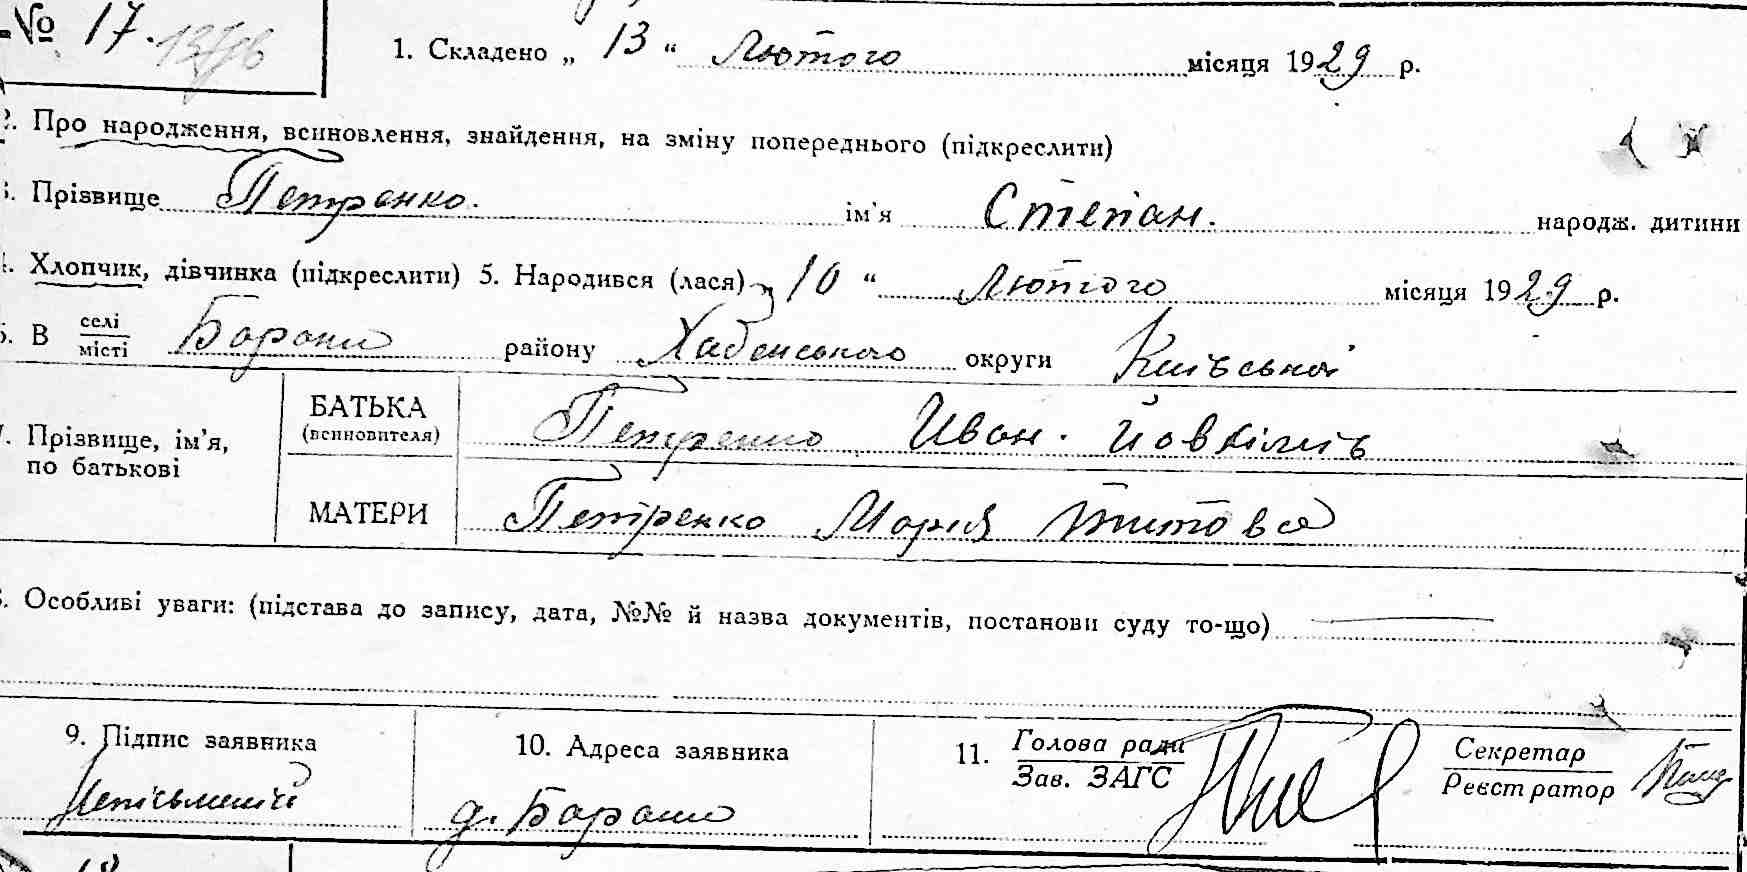 № 17.
1. Складено „ 13 “ Лютого місяця 1929 р.
2. Про народження, всиновлення, знайдення, на зміну попереднього (підкреслити)
3. Прізвище Петренко. ім'я Степан. народж. дитини
4. Хлопчик, дівчинка (підкреслити) 5. Народився (лася) „ 10 “ Лютого місяця 1929 р.
6. В селі/місті Борони району Хабенського округи Київської
7. Прізвище, ім'я, по батькові
БАТЬКА (всиновителя) Петренко Иван. Йовхімів
МАТЕРИ Петренко Мария Титова
8. Особливі уваги: (підстава до запису, дата, №№ й назва документів, постанови суду то-що)
9. Підпис заявника
10. Адреса заявника
11. Голова ради
Зав. ЗАГС
Секретар
Реєстратор
Неписьмений
д. Борони
18